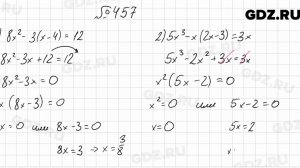 GDZ.RU
№457
8x²-3(x-4)=12
8x²-3x+12=12
8x²-3x=0
x(8x-3)=0
x=0 или 8x-3=0
8x=3 → x=3/8
2) 5x³-x(2x-3)=3x
5x³-2x²+3x=3x
x²(5x-2)=0
x²=0 или 5x-2=0
x=0 5x=2
x
GDZ.RU